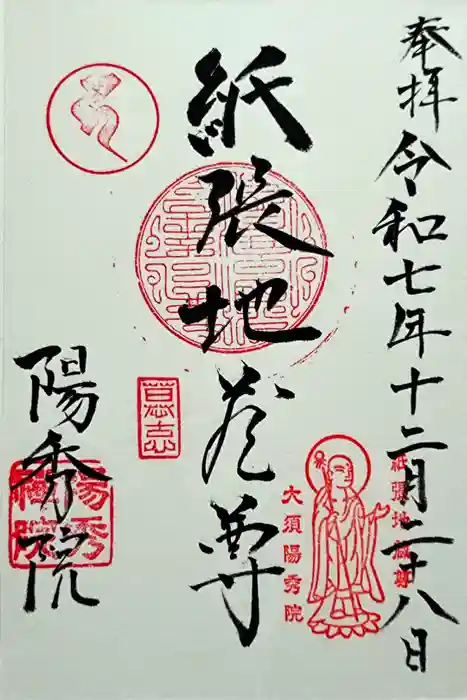 奉拝 令和七年十二月二十八日
紙張地蔵尊
紙張地蔵尊
大須陽秀院
陽秀院
陽秀禅院